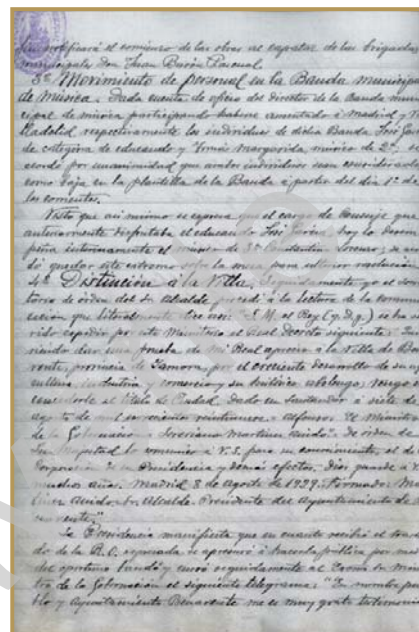 se notificará el comienzo de las obras al capataz de las brigadas
municipales Don Juan Burón Pascual.
3º Movimiento de personal en la Banda municipal
de música. Dada cuenta de oficio del director de la Banda muni
cipal de música participando haberse ausentado a Madrid y Va
lladolid respectivamente los individuos de dicha Banda José
de categoría de educando y Tomás Margarida, músico de 2ª, se
acordó por unanimidad que ambos individuos sean considerados
como baja en la plantilla de la Banda a partir del día 1º de
los corrientes.
Visto que asimismo se expresa que el cargo de Conserje que
anteriormente disfrutaba el educando José hoy lo desem
peña interinamente el músico de 3ª Constantino Lorenzo, se acor
dó quedar este extremo sobre la mesa para ulterior resolución.
4º Distinción a la Villa. Seguidamente yo el secre
tario de orden del Sr. Alcalde procedí a la lectura de la comuni
cación que literalmente dice así: "S. M. el Rey (q. D. g.) se ha ser
vido expedir por este Ministerio el Real Decreto siguiente: Que
riendo dar una prueba de Mi Real aprecio a la Villa de Bena
vente, provincia de Zamora, por el creciente desarrollo de su agri
cultura, industria y comercio y su histórico abolengo, vengo en
concederle el título de Ciudad. Dado en Santander a siete de
agosto de mil novecientos veintinueve. Alfonso. El Ministro
de la Gobernación. Severiano Martínez Anido". De orden de
Su Majestad lo comunico a V. E. para su conocimiento, el de la
Corporación de su Presidencia y demás efectos. Dios guarde a V.
muchos años. Madrid 8 de Agosto de 1929. Firmado: Mar
tínez Anido. Sr. Alcalde-Presidente del Ayuntamiento de Be
navente."
La Presidencia manifiesta que en cuanto recibió el trasla
do de la R. O. expresada se apresuró a hacerla pública por medio
del oportuno bando y cursó seguidamente al Excmo Sr. Minis
tro de la Gobernación el siguiente telegrama: "En nombre pue
blo y Ayuntamiento Benavente me es muy grato testimoniar